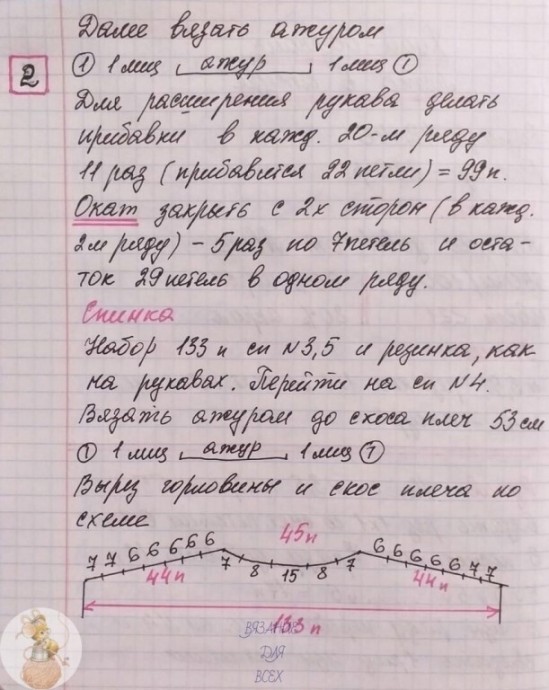 Далее вязать ажуром
2
① 1 лиц ажур 1 лиц ①
Для расширения рукава делать
прибавки в кажд. 20-м ряду
11 раз (прибавится 22 петли) = 99п.
Окат закрыть с 2х сторон (в кажд.
2м ряду) – 5 раз по 7 петель и оста-
ток 29 петель в одном ряду.
Спинка
Набор 133 п сп N3,5 и резинка, как
на рукавах. Перейти на сп N4.
Вязать ажуром до скоса плеч 53 см
① 1 лиц ажур 1 лиц ①
Вырез горловины и скос плеча по
схеме
45п
7 7 6 6 6 6 6 7 8 15 8 7 6 6 6 6 6 7 7
44п 44п
133 п
ВЯЗАНИЕ
ДЛЯ
ВСЕХ